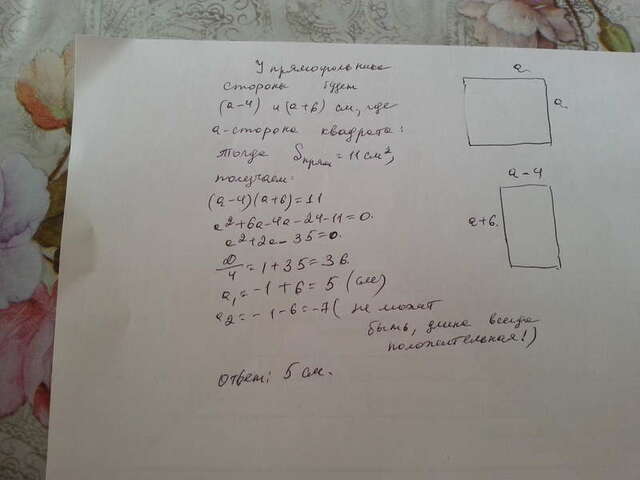 У прямоугольника
стороны будет
(a-4) и (a+6) см, где
a-сторона квадрата:
тогда Sпрям = 11 см²,
получаем:
(a-4)(a+6)=11
a²+6a-4a-24-11=0.
a²+2a-35=0.
D/4=1+35=36.
a₁=-1+6=5 (см)
a₂=-1-6=-7 (не может
быть, длина всегда
положительная!)
Ответ: 5 см.
a
a
a-4
a+6.